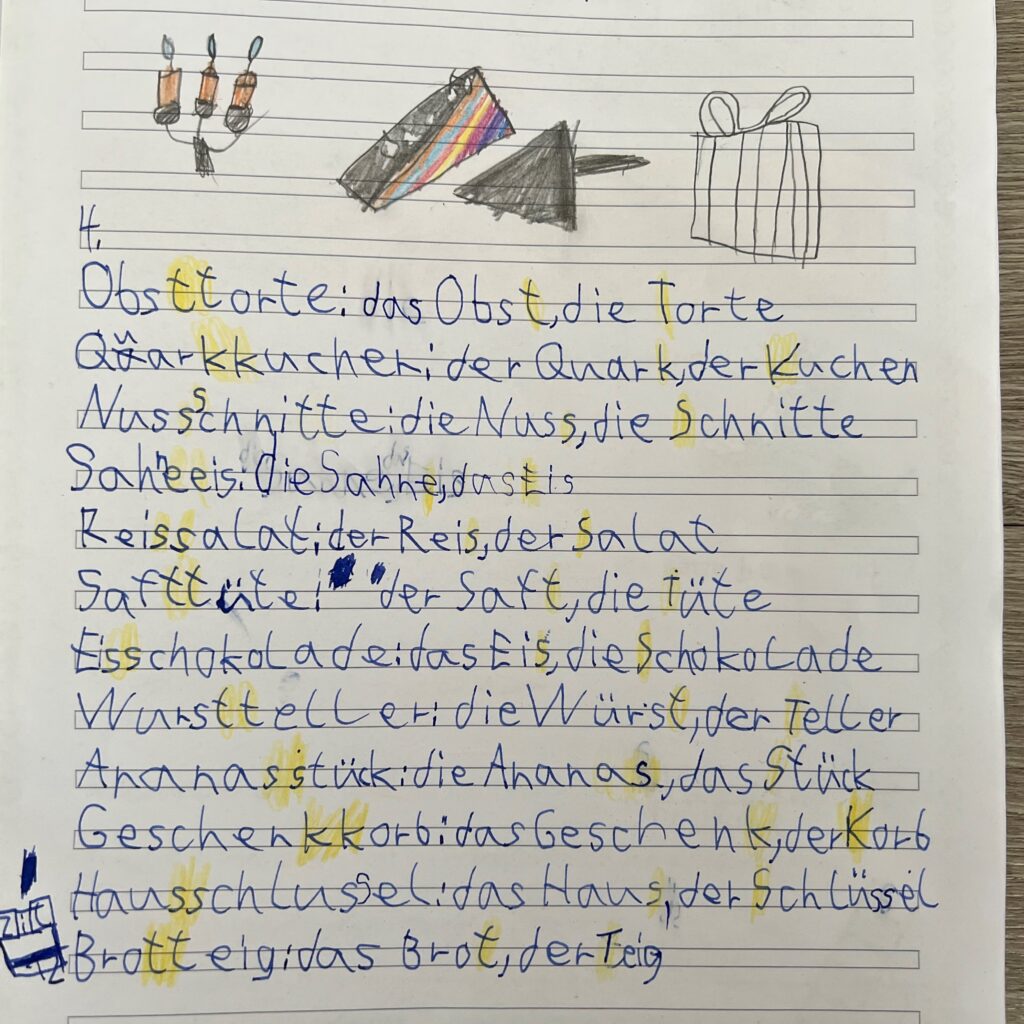 4.
Obsttorte: das Obst, die Torte
Quarkkuchen: der Quark, der Kuchen
Nussschnitte: die Nuss, die Schnitte
Sahneeis: die Sahne, das Eis
Reissalat: der Reis, der Salat
Safttüte: der Saft, die Tüte
Eisschokolade: das Eis, die Schokolade
Wurstteller: die Würst, der Teller
Ananasstück: die Ananas, das Stück
Geschenkkorb: das Geschenk, der Korb
Hausschlussel: das Haus, der Schlüssel
Brotteig: das Brot, der Teig